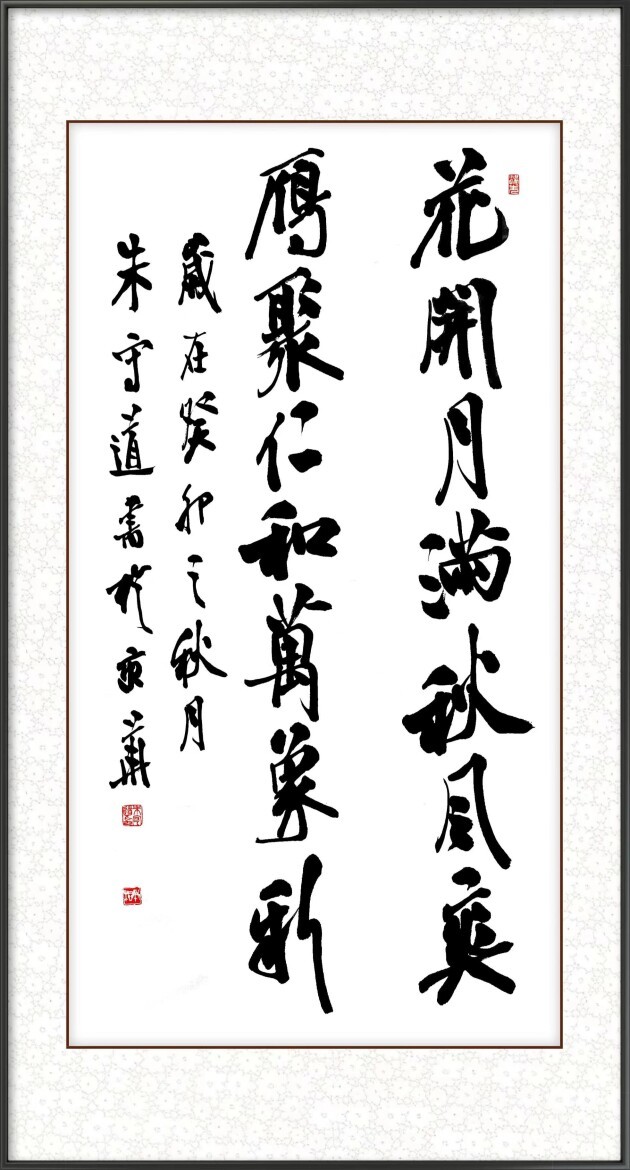 花開月滿秋風爽
鴈聚仁和萬象新
歲在癸卯之秋月
朱守道書於京華